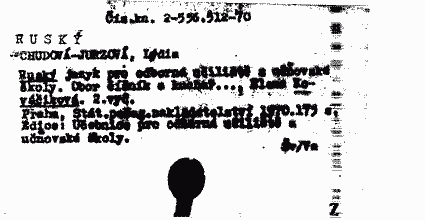 Čis.kn. 2-556.912-70
RUSKÝ
CHUDOVÁ-JURZOVÁ, Lydia
Ruský jazyk pro odborná učiliště a učňovské
školy. Obor číšník a kuchař..., Elena Ko-
váčiková. 2.vyd.
Praha, Stát.pedag.nakladatelství 1970.175 s.
Edice: Učebnice pro odborná učiliště a
učňovské školy.
Šv/Va
Z